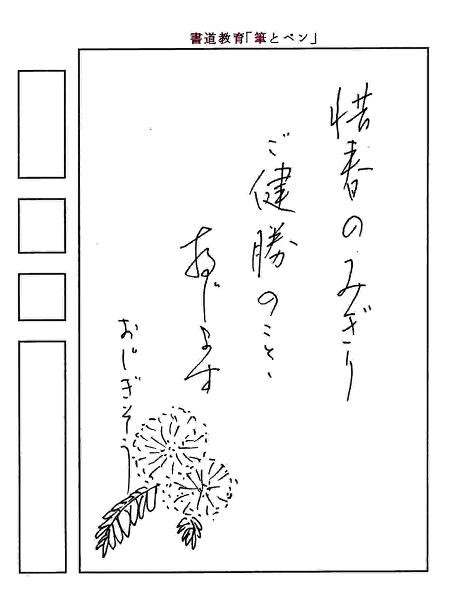 書道教育「筆とペン」
惜春のみぎり
ご健勝のことゝ
存じます
おじぎそう